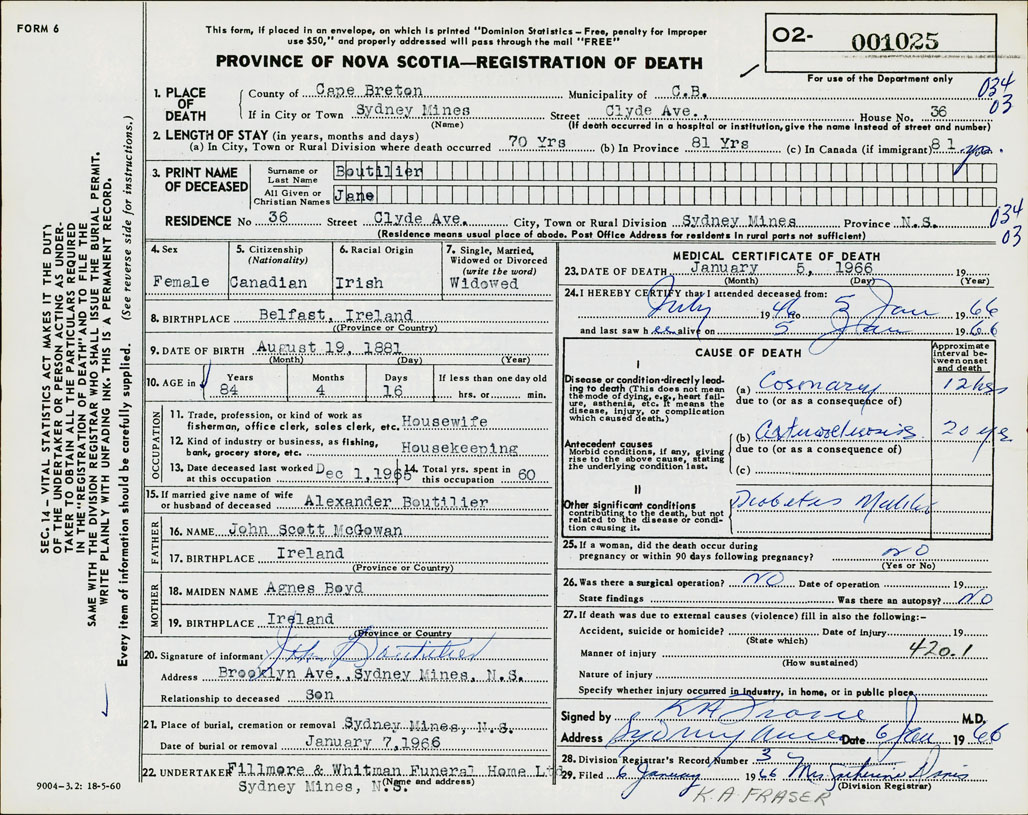 FORM 6
This form, if placed in an envelope, on which is printed "Dominion Statistics – Free, penalty for improper
use $50," and properly addressed will pass through the mail "FREE"
PROVINCE OF NOVA SCOTIA—REGISTRATION OF DEATH
O2- 001025
For use of the Department only
SEC. 14 – VITAL STATISTICS ACT MAKES IT THE DUTY
OF THE UNDERTAKER OR PERSON ACTING AS UNDER-
TAKER TO OBTAIN ALL THE PARTICULARS REQUIRED
IN THE "REGISTRATION OF DEATH" AND TO FILE THE
SAME WITH THE DIVISION REGISTRAR WHO SHALL ISSUE THE BURIAL PERMIT.
WRITE PLAINLY WITH UNFADING INK. THIS IS A PERMANENT RECORD.
Every item of information should be carefully supplied. (See reverse side for instructions.)
1. PLACE OF DEATH
County of Cape Breton Municipality of C.B. 034
If in City or Town Sydney Mines Street Clyde Ave., House No. 36 03
(Name) (If death occurred in a hospital or institution, give the name instead of street and number)
2. LENGTH OF STAY (in years, months and days)
(a) In City, Town or Rural Division where death occurred 70 Yrs (b) In Province 81 Yrs (c) In Canada (if immigrant) 81 yrs.
3. PRINT NAME OF DECEASED
Surname or Last Name Boutilier
All Given or Christian Names Jane
RESIDENCE No 36 Street Clyde Ave. City, Town or Rural Division Sydney Mines Province N.S. 034
03
(Residence means usual place of abode. Post Office Address for residents in rural parts not sufficient)
4. Sex Female
5. Citizenship (Nationality) Canadian
6. Racial Origin Irish
7. Single, Married, Widowed or Divorced (write the word) Widowed
8. BIRTHPLACE Belfast, Ireland
(Province or Country)
9. DATE OF BIRTH August 19, 1881
(Month) (Day) (Year)
10. AGE in Years 84 Months 4 Days 16 If less than one day old hrs. or min.
OCCUPATION
11. Trade, profession, or kind of work as
fisherman, office clerk, sales clerk, etc. Housewife
12. Kind of industry or business, as fishing,
bank, grocery store, etc. Housekeeping
13. Date deceased last worked at this occupation Dec 1, 1965 14. Total yrs. spent in this occupation 60
15. If married give name of wife
or husband of deceased Alexander Boutilier
FATHER
16. NAME John Scott McGowan
17. BIRTHPLACE Ireland
(Province or Country)
MOTHER
18. MAIDEN NAME Agnes Boyd
19. BIRTHPLACE Ireland
(Province or Country
20. Signature of informant John Boutilier
Address Brooklyn Ave., Sydney Mines, N.S.
Relationship to deceased Son
21. Place of burial, cremation or removal Sydney Mines, N.S.
Date of burial or removal January 7, 1966
22. UNDERTAKER Fillmore & Whitman Funeral Home Ltd
Sydney Mines, N.S. (Name and address)
9004–3.2: 18-5-60
MEDICAL CERTIFICATE OF DEATH
23. DATE OF DEATH January 5, 1966 19
(Month) (Day) (Year)
24. I HEREBY CERTIFY that I attended deceased from:
July 1946 to 5 Jan 1966
and last saw her alive on 5 Jan 1966
CAUSE OF DEATH
Approximate interval between onset and death
I
Disease or condition directly lead-
ing to death (This does not mean
the mode of dying, e.g., heart fail-
ure, asthenia, etc. It means the
disease, injury, or complication
which caused death.)
(a) Coronary 12 hrs
due to (or as a consequence of)
Antecedent causes
Morbid conditions, if any, giving
rise to the above cause, stating
the underlying condition last.
(b) Arteriosclerosis 20 yrs
due to (or as a consequence of)
(c)
II
Other significant conditions
contributing to the death, but not
related to the disease or condi-
tion causing it.
Diabetes Mellitus
25. If a woman, did the death occur during
pregnancy or within 90 days following pregnancy? NO
(Yes or No)
26. Was there a surgical operation? NO Date of operation 19
State findings Was there an autopsy? NO
27. If death was due to external causes (violence) fill in also the following:–
Accident, suicide or homicide? Date of injury 19
(State which)
Manner of injury 420.1
(How sustained)
Nature of injury
Specify whether injury occurred in industry, in home, or in public place
Signed by K A Fraser M.D.
Address Sydney Mines Date 6 Jan 1966
28. Division Registrar's Record Number 3
29. Filed 6 January 1966 Mrs Catherine Davis
(Division Registrar)
K.A. FRASER